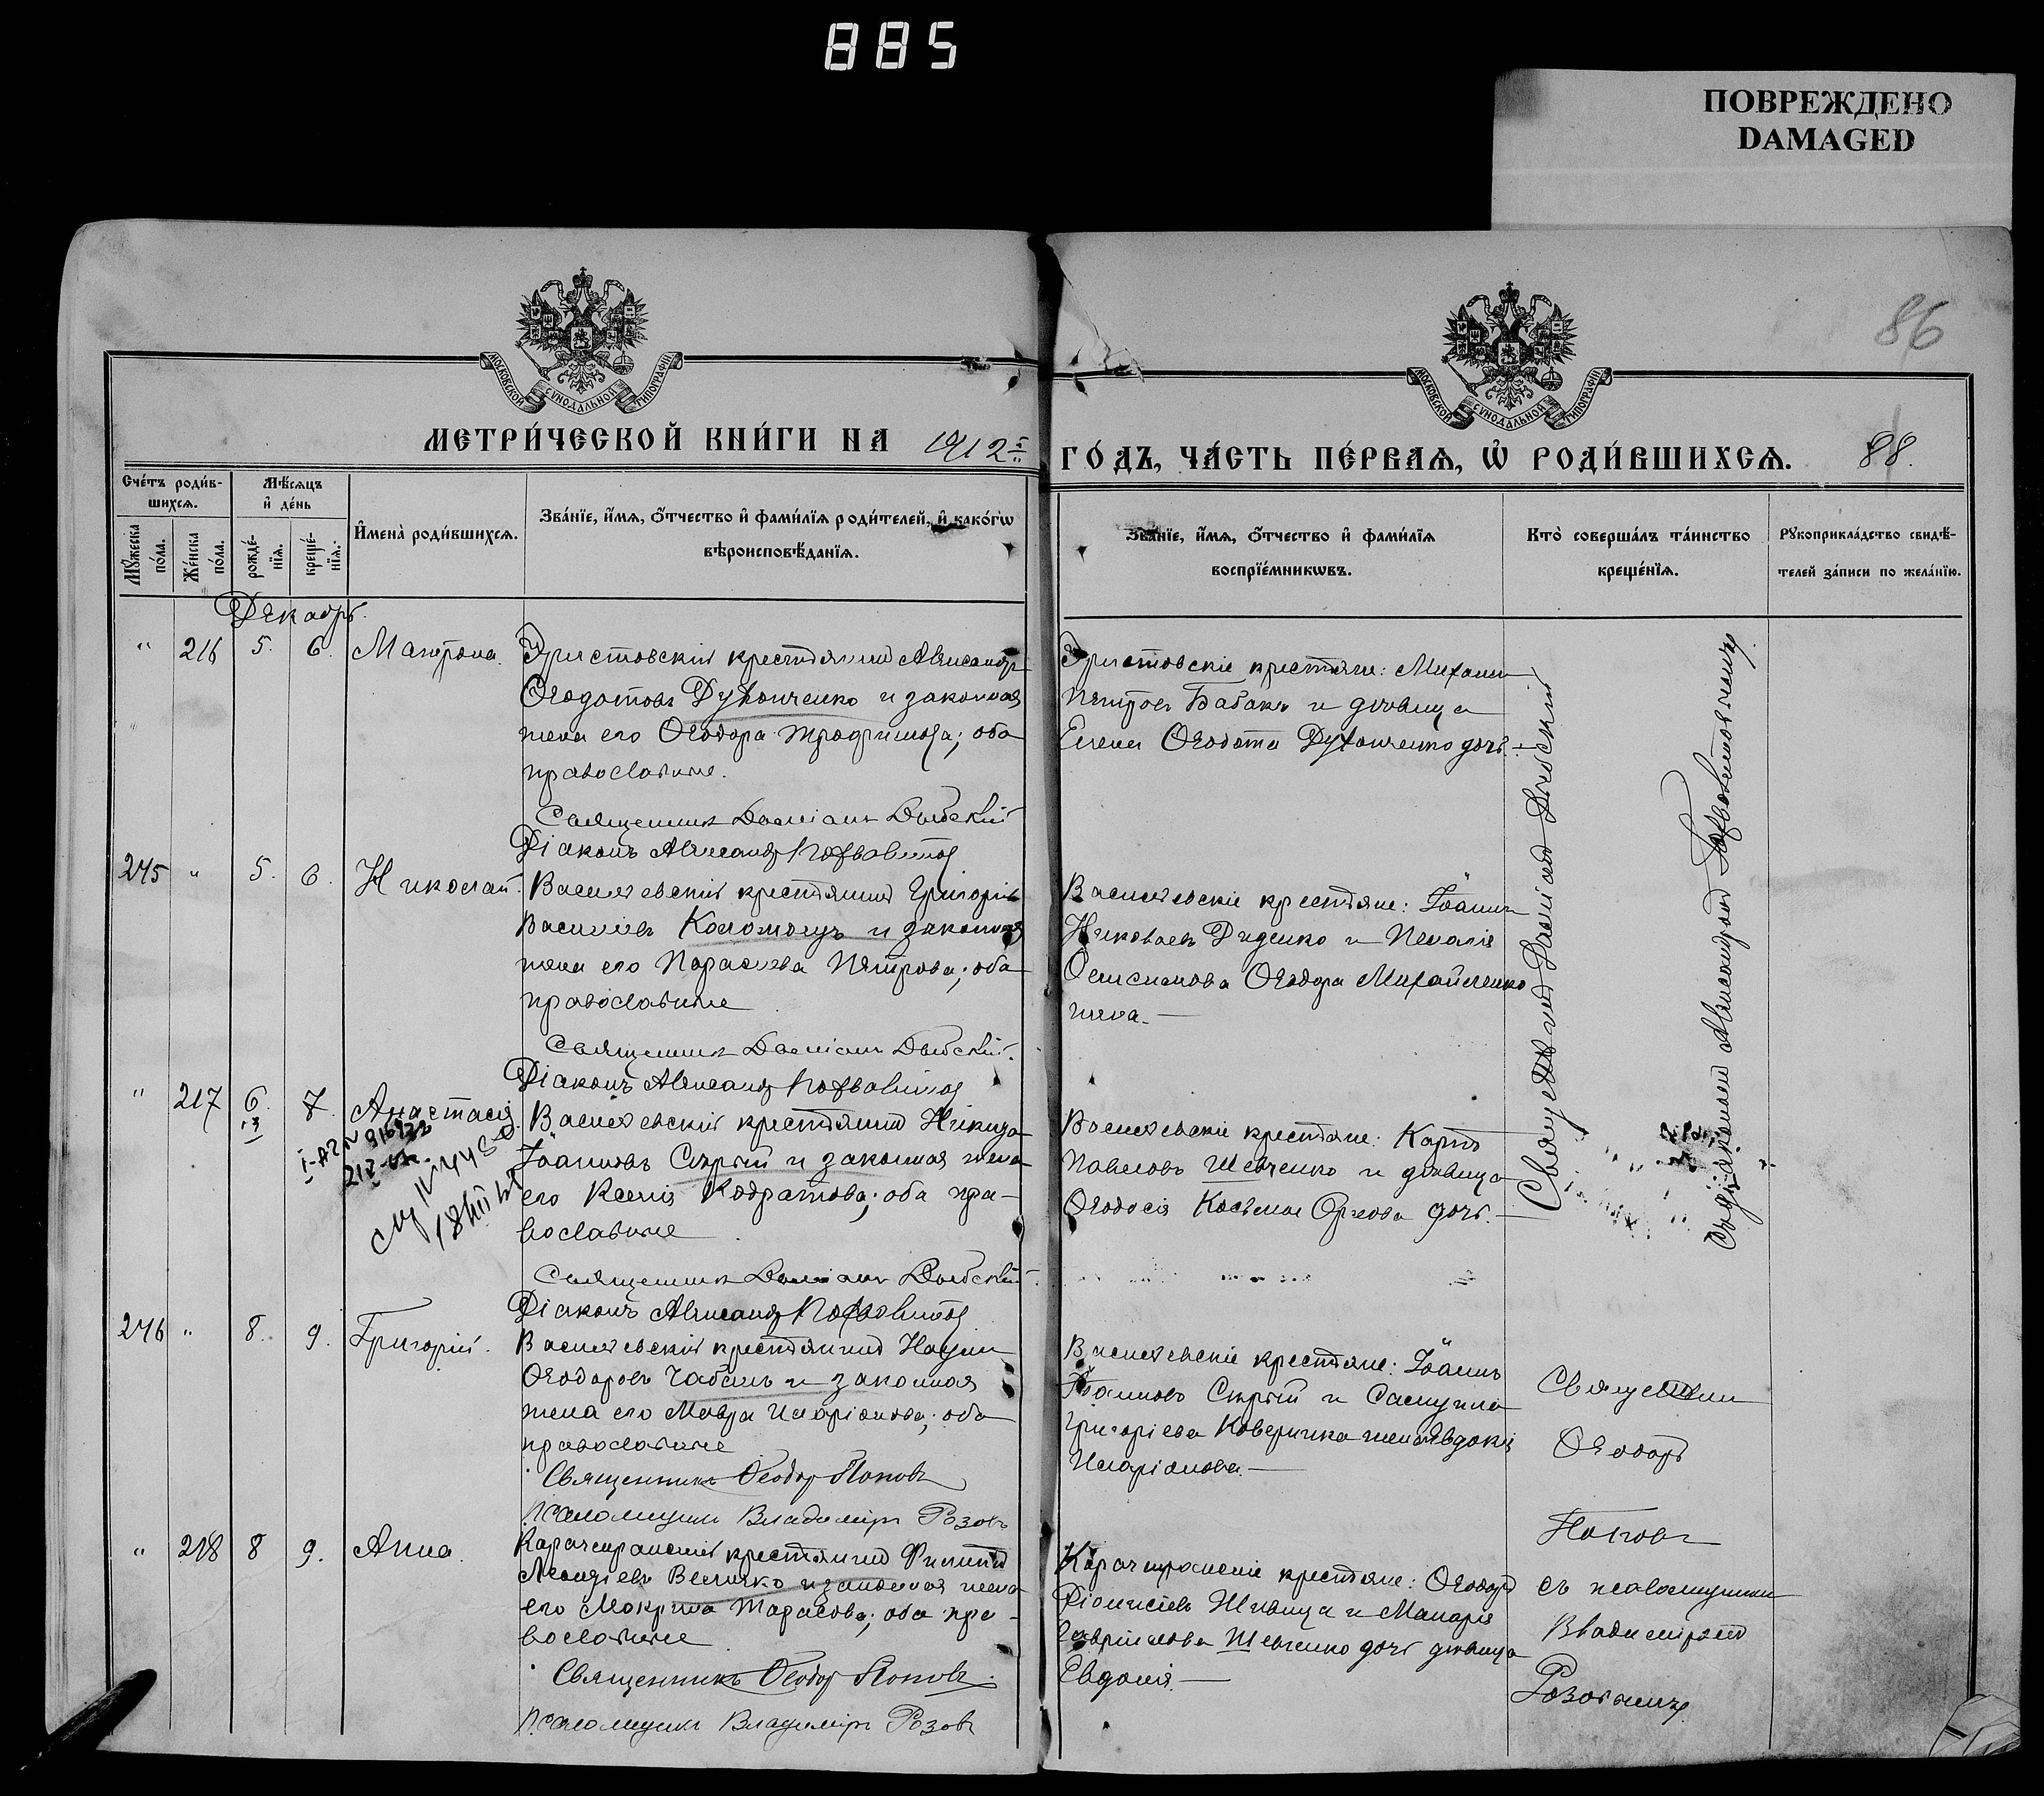 885
ПОВРЕЖДЕНО
DAMAGED
86
МОСКОВСКОЙ СѴНОДАЛЬНОЙ ТИПОГРАФІИ
МОСКОВСКОЙ СѴНОДАЛЬНОЙ ТИПОГРАФІИ
МЕТРИ́ЧЕСКОЙ КНИ́ГИ НА 1912 ГО́ДЪ, ЧА́СТЬ ПЕ́РВАѦ, Ѡ҆ РОДИ́ВШИХСѦ. 88.
Сче́тъ роди́в-
шихсѧ.
Мꙋ́жеска по́ла.
Же́нска по́ла.
Мѣ́сѧцъ
и҆ де́нь
рожде́-
нїѧ.
креще́-
нїѧ.
И҆мена̀ роди́вшихсѧ.
Зва́нїе, и҆́мѧ, ѻ҆́тчество и҆ фами́лїѧ роди́телей, и҆ како́гѡ
вѣроисповѣ́данїѧ.
Зва́нїе, и҆́мѧ, ѻ҆́тчество и҆ фами́лїѧ
воспрїе́мникѡвъ.
Кто̀ соверша́лъ та́инство
креще́нїѧ.
Рꙋкоприкла́дство свидѣ́-
телей за́писи по жела́нїю.
Декабрь.
" 216 5. 6. Матрона.
крестьянинъ Александръ
Ѳеодотовъ Духонченко и законная
жена его Ѳеодора Трофимова; оба
православные.
Священникъ Даміанъ
Діаконъ Александръ
крестьяне: Михаилъ
Петровъ Бабакъ и дѣвица
Елена Ѳеодота Духонченко дочь.
245 " 5. 6. Николай.
Васильевскій крестьянинъ Григорій
Васильевъ Коломоецъ и законная
жена его Параскева Петрова; оба
православные
Священникъ Даміанъ
Діаконъ Александръ
Васильевскіе крестьяне: Іоаннъ
Николаевъ Диденко и Пелагія
Ѳеодора Михайленко
жена.
" 217 6. 7. Анастасія
13
Васильевскій крестьянинъ Никита
Іоанновъ Сѣрый и законная жена
его Ксенія Кодратова; оба пра-
вославные
Священникъ Даміанъ
Діаконъ Александръ
Васильевскіе крестьяне: Карпъ
Павловъ Шевченко и дѣвица
Ѳеодосія Косьмы Орлова дочь.
246 " 8. 9. Григорій.
Васильевскій крестьянинъ Наумъ
Ѳеодоровъ Чабанъ и законная
жена его Мавра Иларіонова; оба
православные
Священникъ Ѳеодоръ Поповъ
Псаломщикъ Владиміръ Розовъ
Васильевскіе крестьяне: Іоаннъ
Іоанновъ Сѣрый и Самуила
Григоріева жена Евдокія
Иларіонова.
Священникъ
Ѳеодоръ
Поповъ
съ псаломщикомъ
Владиміромъ
Розовымъ.
" 218 8 9. Анна.
крестьянинъ Филиппъ
Величко и законная жена
его Мокрина Тарасова; оба пра-
вославные
Священникъ Ѳеодоръ Поповъ
Псаломщикъ Владиміръ Розовъ
крестьяне: Ѳеодоръ
Діонисіевъ и Макарія
Гавріилова Шевченко дочь дѣвица
Евдокія.